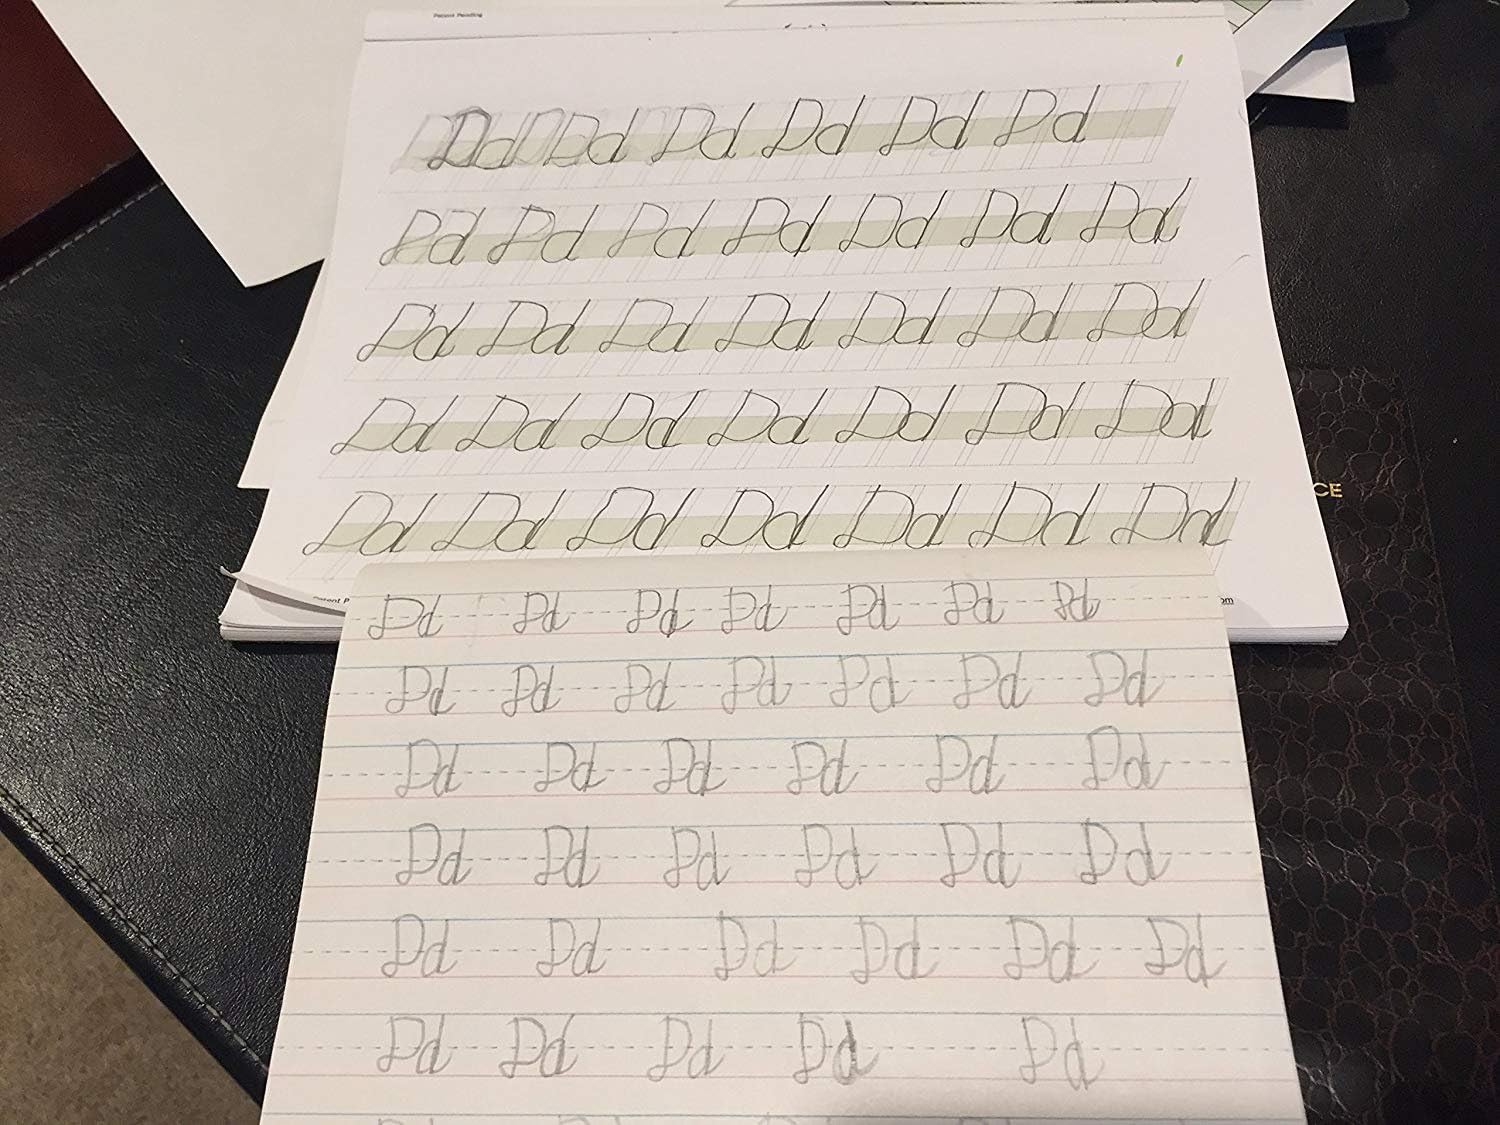 Patent Pending
Dd Dd Dd Dd Dd Dd
Dd Dd Dd Dd Dd Dd Dd
Dd Dd Dd Dd Dd Dd Dd
Dd Dd Dd Dd Dd Dd Dd
CE
Dd Dd Dd Dd Dd Dd Dd
Dd Dd Dd Dd Dd Dd Dd
Dd Dd Dd Dd Dd Dd Dd
Dd Dd Dd Dd Dd Dd
Dd Dd Dd Dd Dd Dd
Dd Dd Dd Dd Dd Dd
Dd Dd Dd Dd Dd